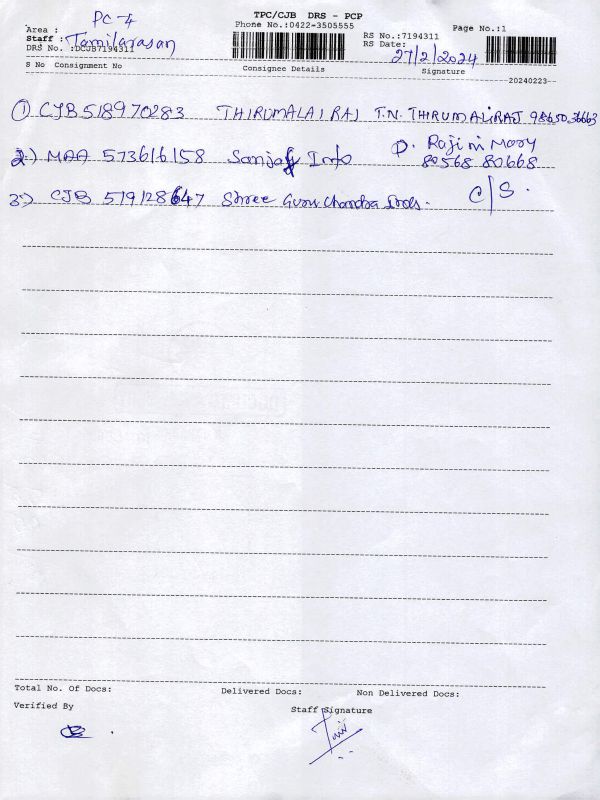 TPC/CJB DRS - PCP
Phone No.:0422-3505555
Page No.:1
Area : PC-4
RS No.:7194311
Staff : Tamilarasan
RS Date: 27/2/2024
DRS No. :DCJB7194311
S No Consignment No Consignee Details Signature
20240223
1) CJB 518970283 THIRUMALAI RAJ T.N. THIRUMALIRAJ 98650 36663
2) MAA 573616158 Sanjay Info D. Rajini Mary
89568 80668
3) CJB 519128647 Shree Guru Chandra Inds. C/S.
Total No. Of Docs: Delivered Docs: Non Delivered Docs:
Verified By Staff Signature